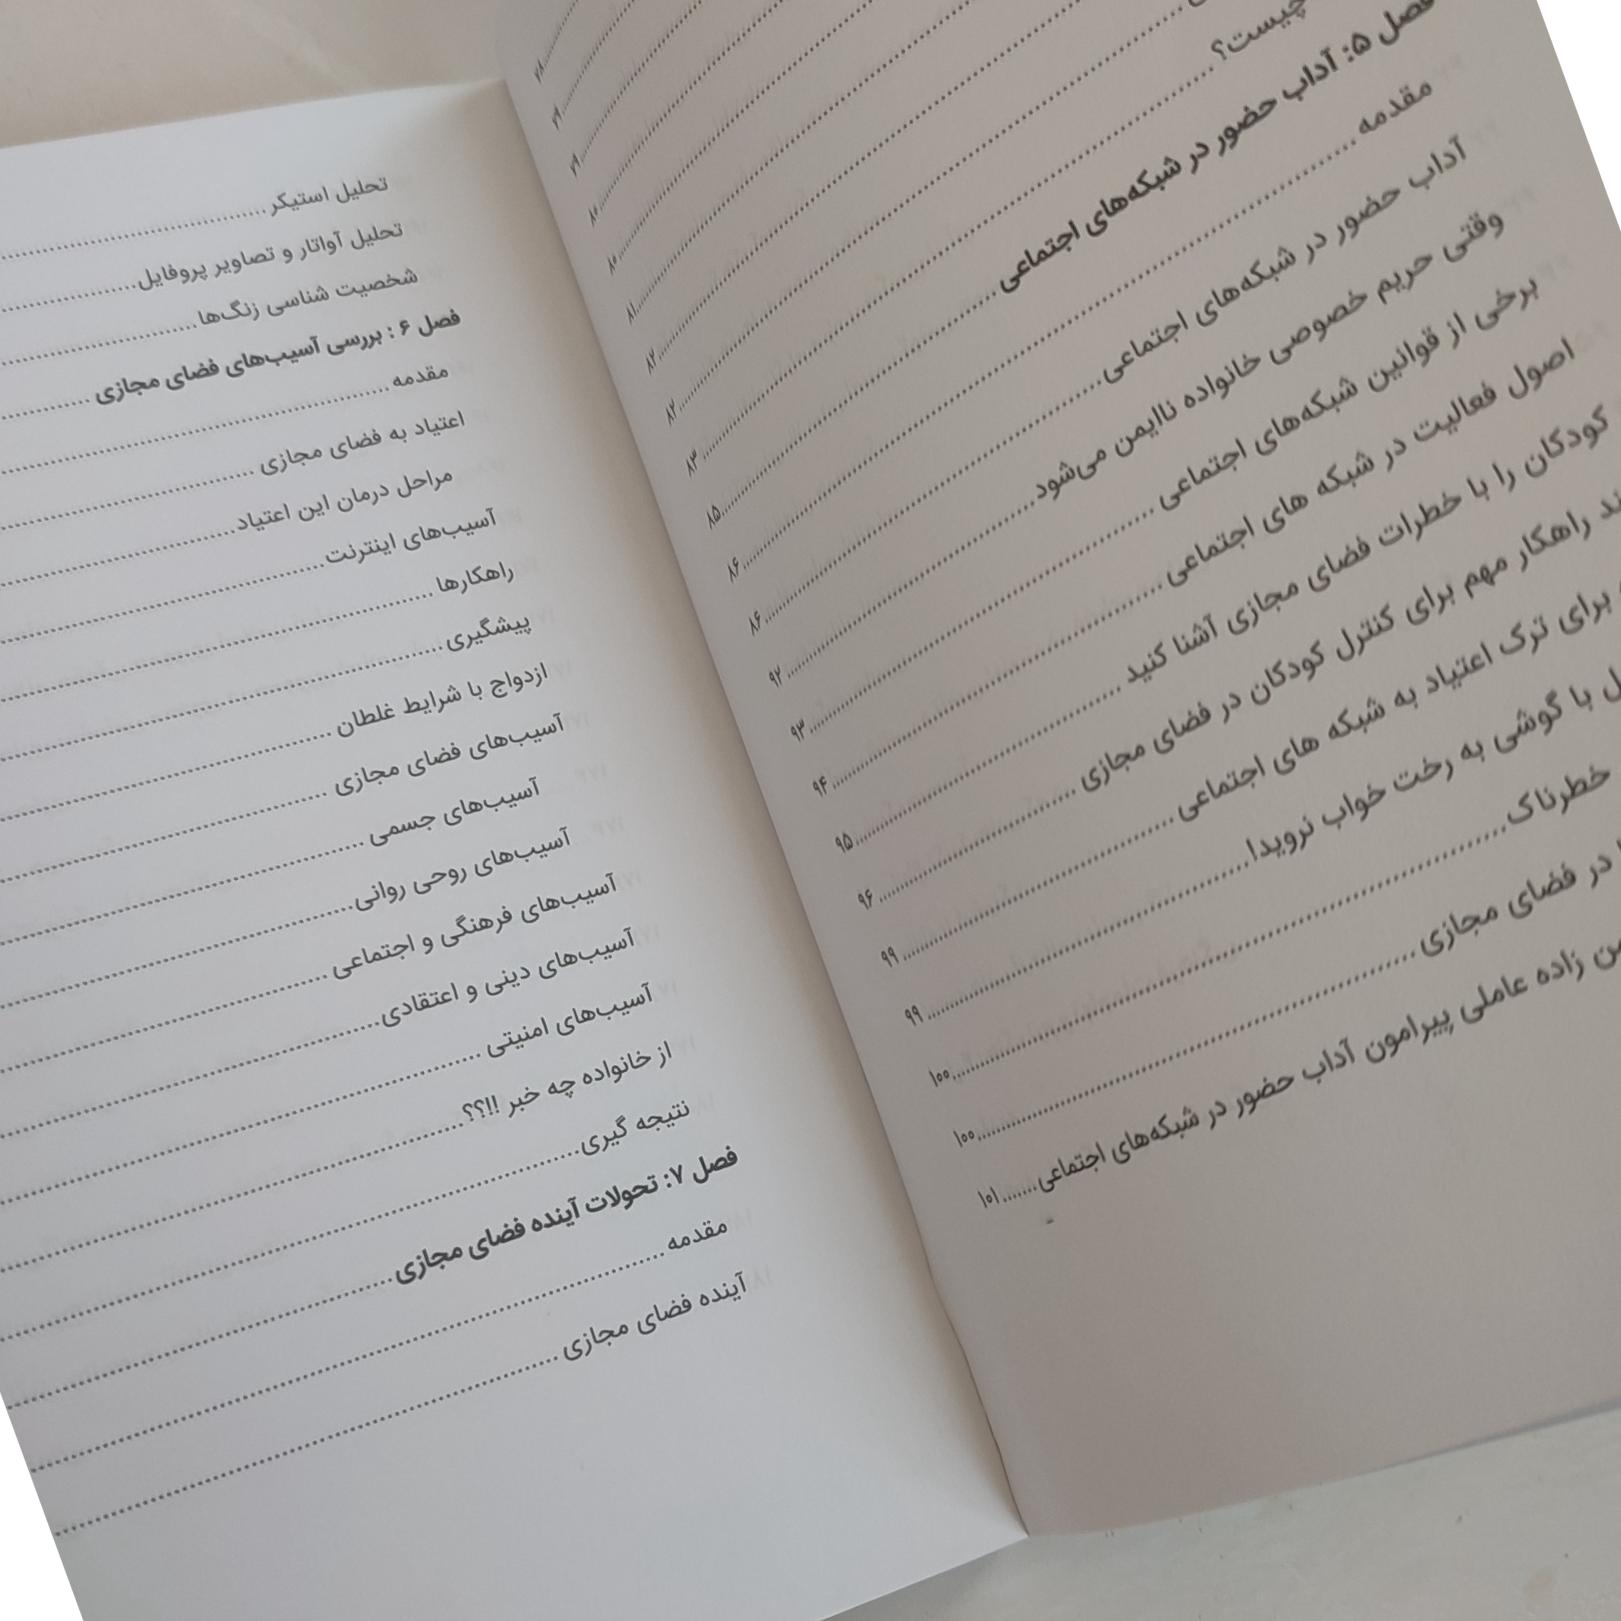 ۷۸
۷۹
۷۹
۸۰
۸۰
۸۱
۸۲
۸۲
چیست؟ ........ ۸۳
فصل ۵: آداب حضور در شبکه‌های اجتماعی ........ ۸۵
مقدمه ........ ۸۶
آداب حضور در شبکه‌های اجتماعی ........ ۸۶
وقتی حریم خصوصی خانواده ناایمن می‌شود ........ ۹۲
برخی از قوانین شبکه‌های اجتماعی ........ ۹۳
اصول فعالیت در شبکه های اجتماعی ........ ۹۴
کودکان را با خطرات فضای مجازی آشنا کنید ........ ۹۵
راهکار مهم برای کنترل کودکان در فضای مجازی ........ ۹۶
برای ترک اعتیاد به شبکه های اجتماعی ........ ۹۹
با گوشی به رخت خواب نروید! ........ ۹۹
خطرناک ........ ۱۰۰
در فضای مجازی ........ ۱۰۰
زاده عاملی پیرامون آداب حضور در شبکه‌های اجتماعی ........ ۱۰۱
تحلیل استیکر ........
تحلیل آواتار و تصاویر پروفایل ........
شخصیت شناسی زنگ‌ها ........
فصل ۶ : بررسی آسیب‌های فضای مجازی ........
مقدمه ........
اعتیاد به فضای مجازی ........
مراحل درمان این اعتیاد ........
آسیب‌های اینترنت ........
راهکارها ........
پیشگیری ........
ازدواج با شرایط غلطان ........
آسیب‌های فضای مجازی ........
آسیب‌های جسمی ........
آسیب‌های روحی روانی ........
آسیب‌های فرهنگی و اجتماعی ........
آسیب‌های دینی و اعتقادی ........
آسیب‌های امنیتی ........
از خانواده چه خبر !!؟؟ ........
نتیجه گیری ........
فصل ۷: تحولات آینده فضای مجازی ........
مقدمه ........
آینده فضای مجازی ........